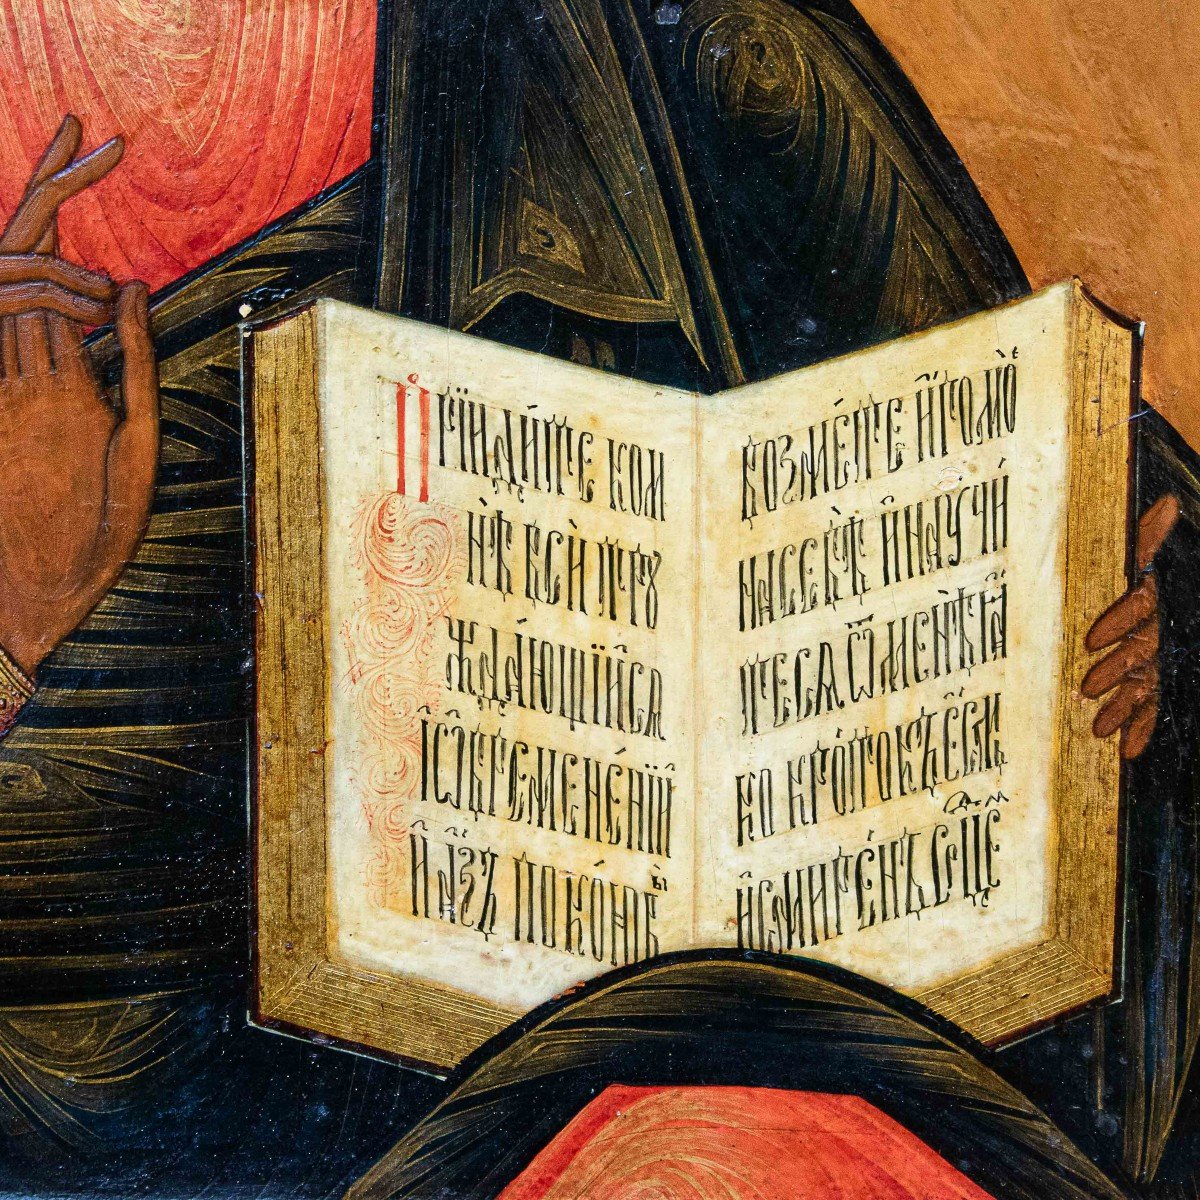 Прїиди́те ко м
нѣ̀ всѝ трꙋ
жда́ющїйсѧ
ѝ ѡ҆бремене́нїй
и҆ а҆́зъ поко́ю вы̀
возме́те и҆́го моѐ
на себѣ̀ и҆ наꙋчи́
тесѧ ѿ менѣ̀ ꙗ҆́
ко кро́токъ є҆́смь
и҆ смире́нъ се́рдцемъ